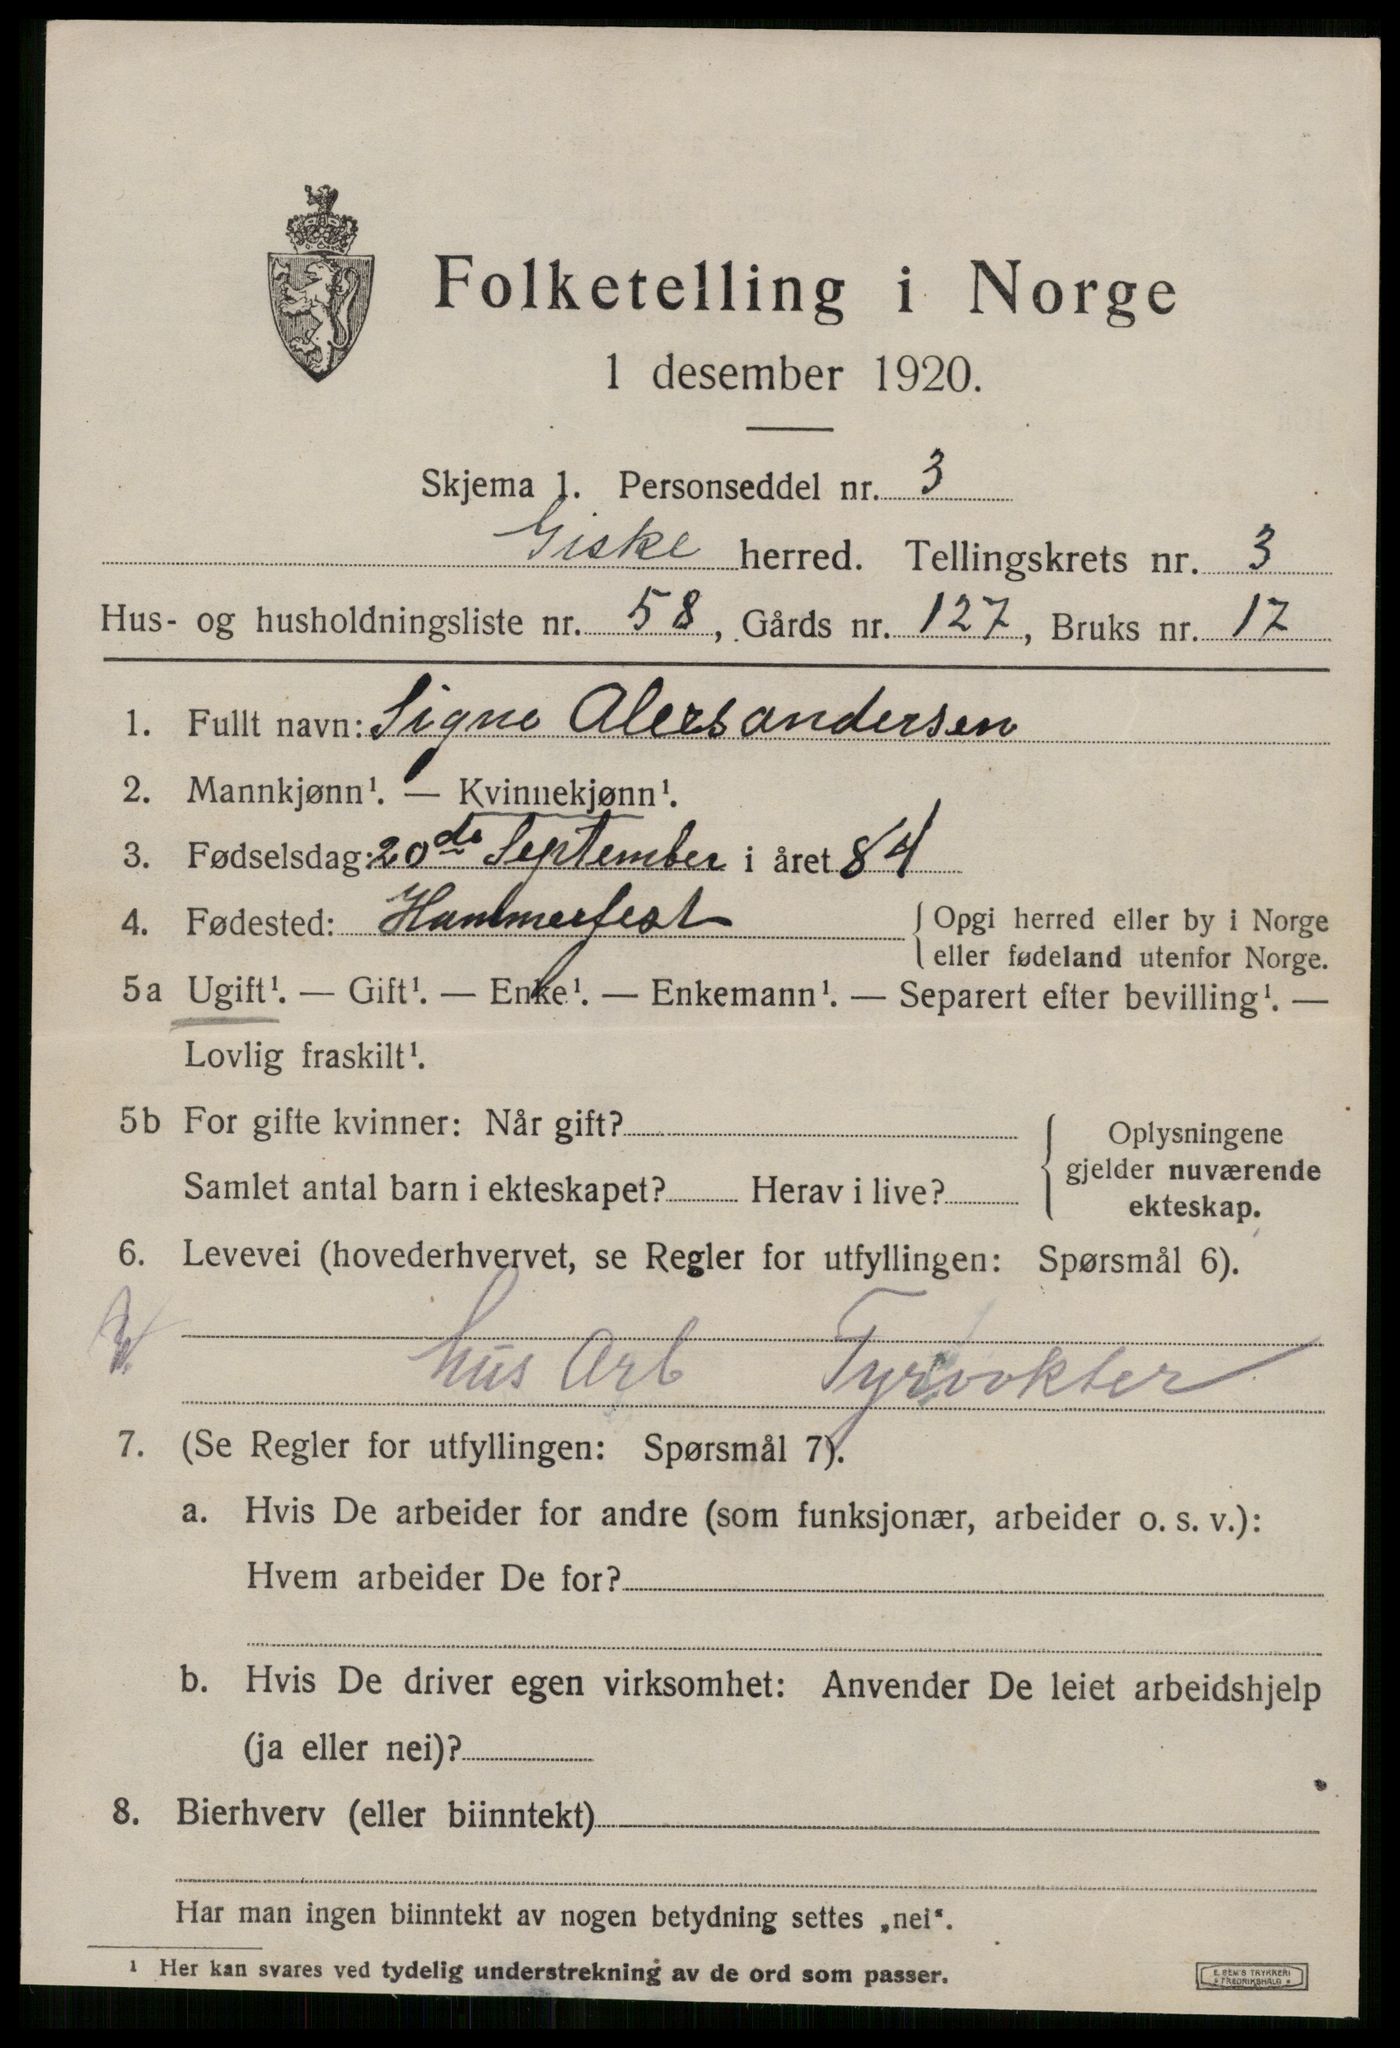 Folketelling i Norge
1 desember 1920.
Skjema 1. Personseddel nr. 3
Giske herred. Tellingskrets nr. 3
Hus- og husholdningsliste nr. 58, Gårds nr. 127, Bruks nr. 17
1. Fullt navn: Signe Alexsandersen
2. Mannkjønn¹. — Kvinnekjønn¹.
3. Fødselsdag: 20de September i året 84
4. Fødested: Hammerfest { Opgi herred eller by i Norge
eller fødeland utenfor Norge.
5a Ugift¹. — Gift¹. — Enke¹. — Enkemann¹. — Separert efter bevilling¹. —
Lovlig fraskilt¹.
5b For gifte kvinner: Når gift?
Samlet antal barn i ekteskapet? Herav i live?
{ Oplysningene
gjelder nuværende
ekteskap.
6. Levevei (hovederhvervet, se Regler for utfyllingen: Spørsmål 6).
hus Arb Fyrvokter
7. (Se Regler for utfyllingen: Spørsmål 7).
a. Hvis De arbeider for andre (som funksjonær, arbeider o. s. v.):
Hvem arbeider De for?
b. Hvis De driver egen virksomhet: Anvender De leiet arbeidshjelp
(ja eller nei)?
8. Bierhverv (eller biinntekt)
Har man ingen biinntekt av nogen betydning settes „nei“.
¹ Her kan svares ved tydelig understrekning av de ord som passer.
E. SEM'S TRYKKERI
FREDRIKSHALD